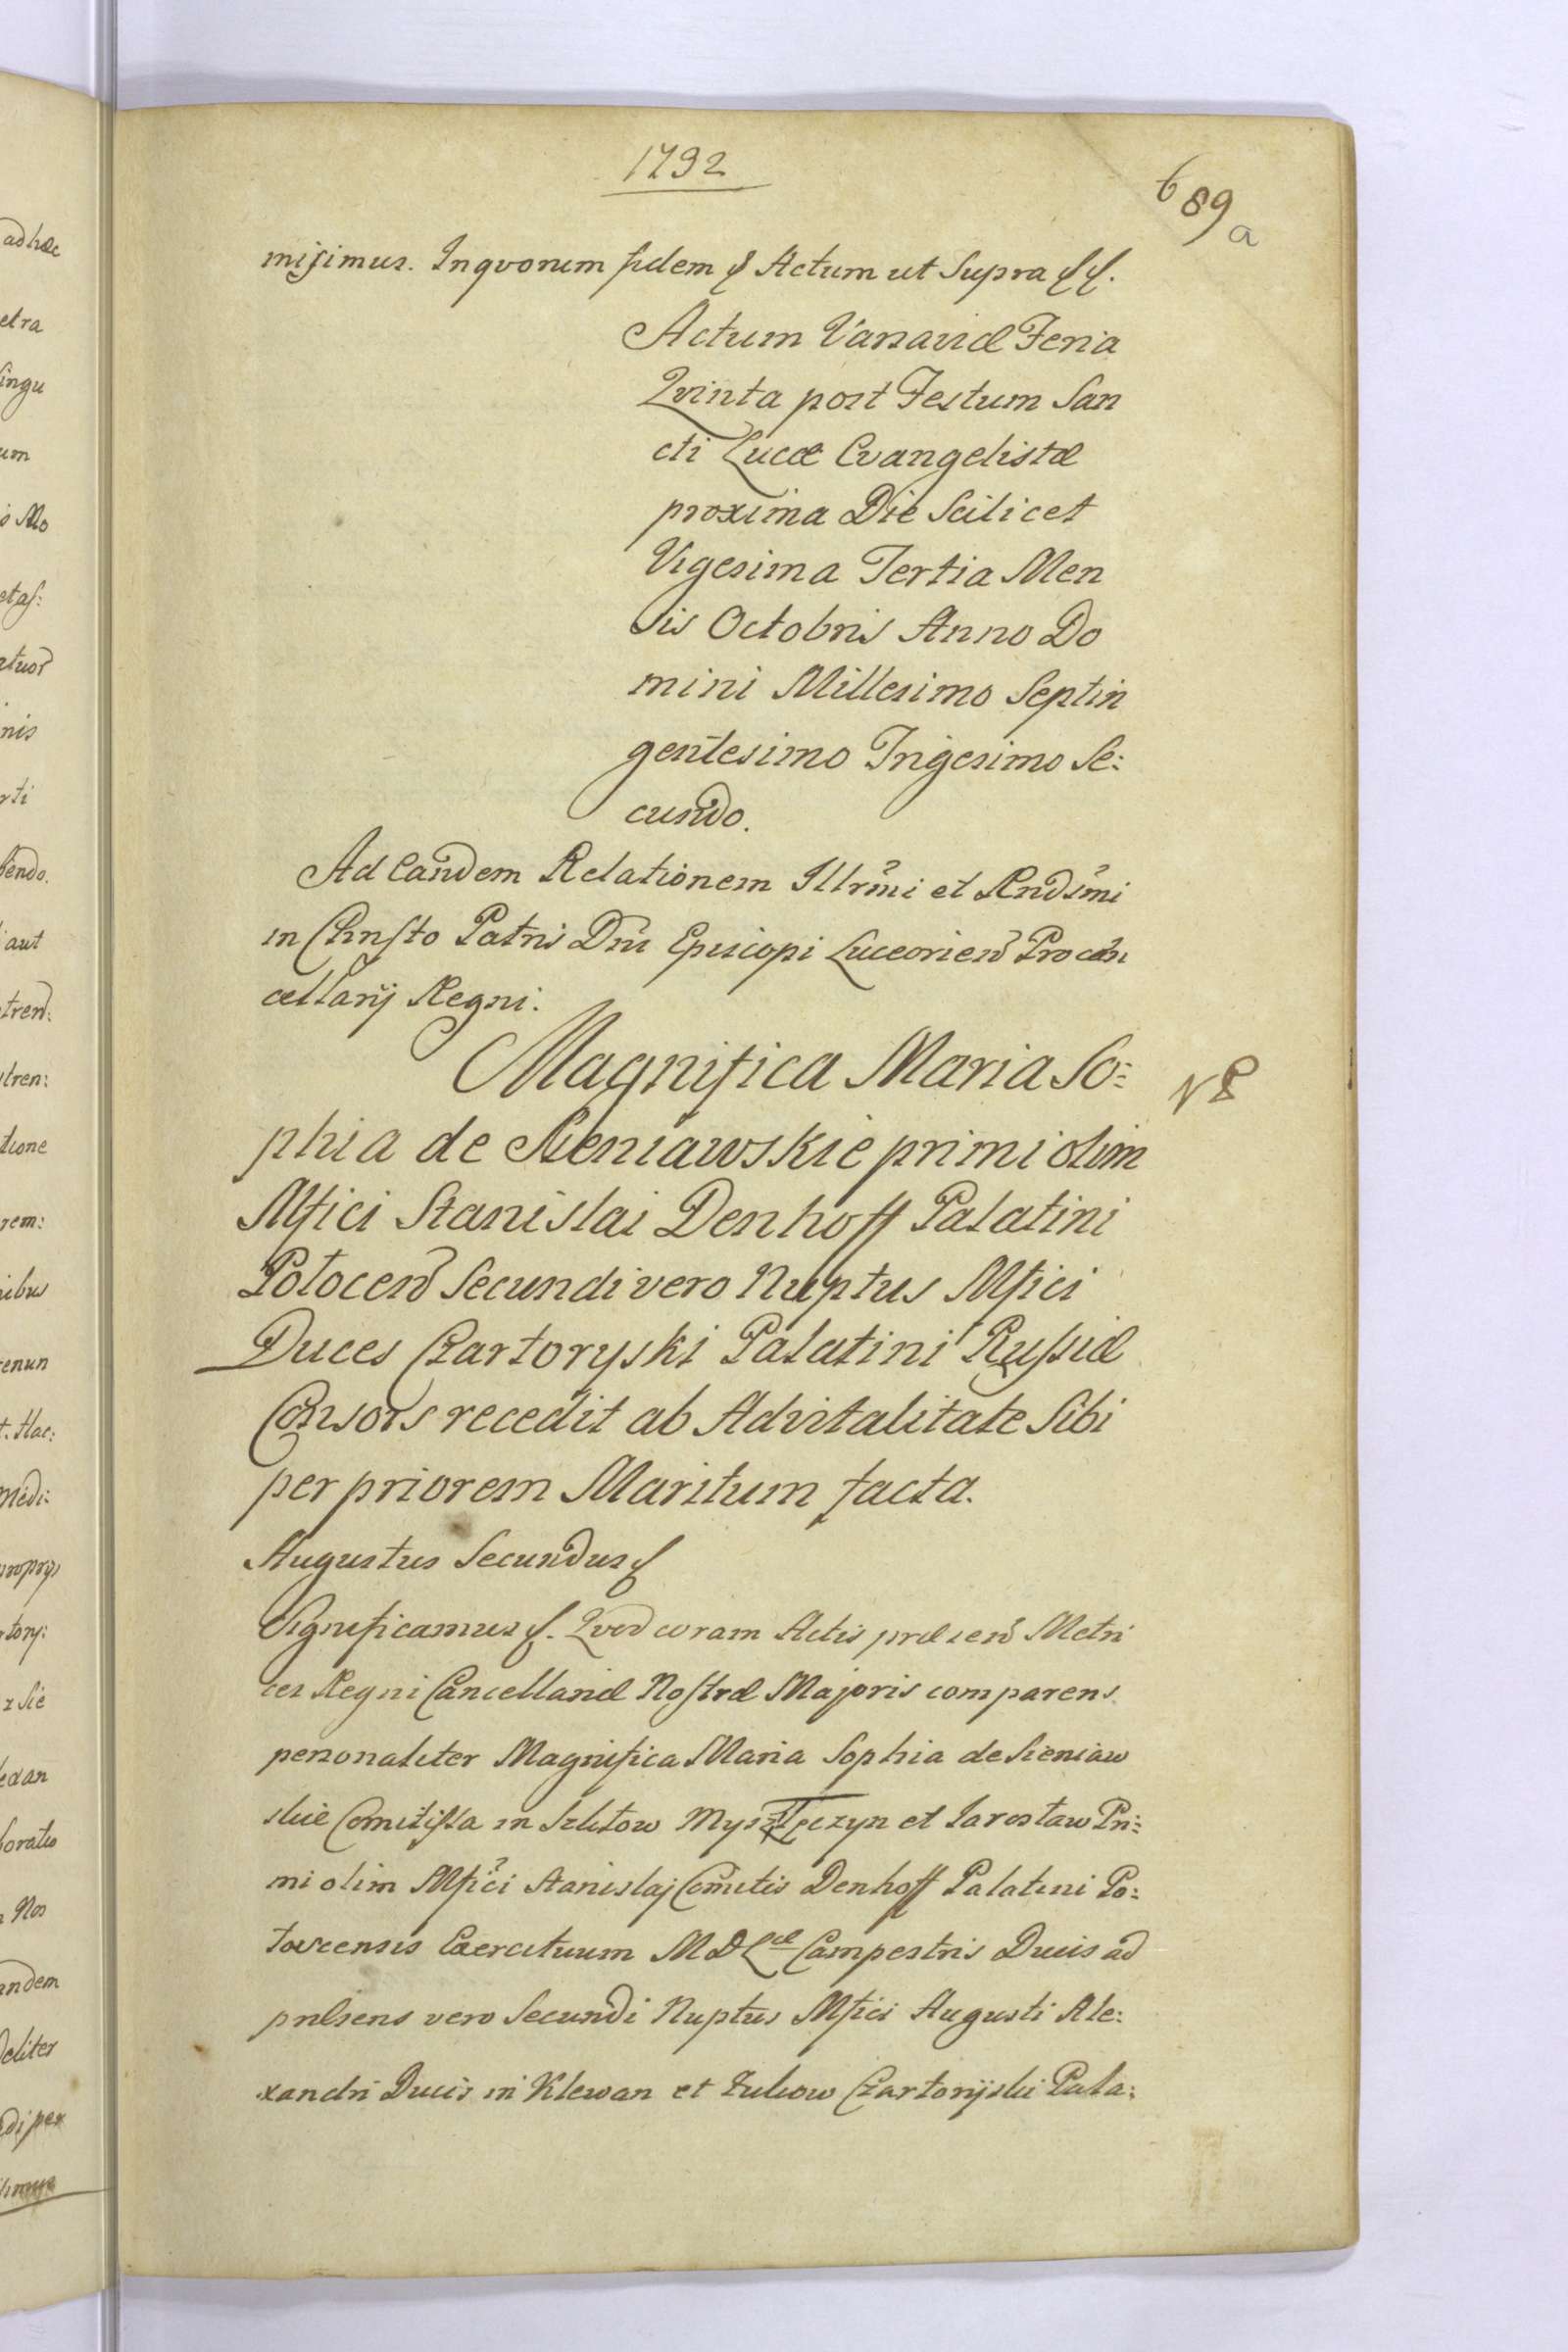 1732
689
a
misimus. Inqvorum fidem & Actum ut Supra &&.
Actum Varsaviæ Feria
Qvinta post Festum San
cti Lucæ Evangelistæ
proxima Die Scilicet
Vigesima Tertia Men
sis Octobris Anno Do
mini Millesimo Septin
gentesimo Trigesimo Se:
cundo.
Ad Eandem Relationem Illrmi et Rndsmi
in Christo Patris Dni Episcopi Luceorien Procan
cellarij Regni.
Magnifica Maria So:
phia de Sieniawskie primi olim
Mfici Stanislai Denhoff Palatini
Polocen Secundi vero Nuptus Mfici
Duces Czartoryski Palatini Russiæ
Consors recedit ab Advitalitate Sibi
per priorem Maritum facta.
Augustus Secundus &
Significamus &. Qvod coram Actis præsen Metri
ces Regni Cancellariæ Nostræ Majoris comparens
personaliter Magnifica Maria Sophia de Sieniaw
skie Comitissa in Szklow et Jaroslaw Pri:
mi olim Mfici Stanislaj Comitis Denhoff Palatini Po:
locensis Exercituum M D Læ Campestris Ducis ad
præsens vero Secundi Nuptus Mfici Augusti Ale:
xandri Ducis in Klewan et Zukow Czartoryski Pala: